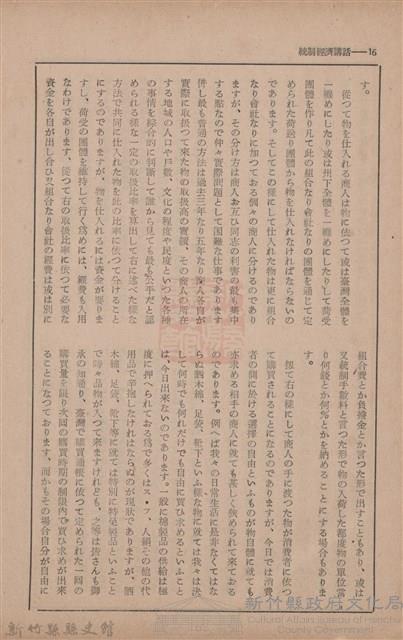 統制經濟講話――16
す。
　從つて物を仕入れる商人は物に依つて或は臺灣全體を
一纏めにしたり或は州下全體を一纏めにしたりして荷受
團體を作り凡て此の組合なり會社なりの團體を通じて定
められた荷送り團體から物を仕入れなければならないの
であります。そしてこの樣にして仕入れた物は更に組合
なり會社なりに加つてをる個々の商人に分けるのであり
ますが、その分け方は商人お互ひ同志の利害の最も集中
する點なので仲々實際問題として困難な仕事であります
併し最も普通の方法は過去三年なり五年なり商人各自が
實際に取扱つて來た物の取扱高の實績、その商人の所在
する地域の人口や戸數、文化の程度や民度といつた各種
の事情を綜合的に判斷して誰から見ても最も公平だと認
められる樣な一定の取扱比率を算出して右に述べた樣な
方法で共同に仕入れた物を此の比率に依つて分けること
にするのでありますが、物を仕入れるには資金が要りま
すし、荷受の團體を維持して行く爲めには、經費も入用
なわけであります、從つて右の取扱比率に依つて必要な
資金を各自が出し合ひ又組合なり會社の經費は或は別に
組合費とか負擔金とか言つた形で出すこともあり、或は
又統制手數料と言つた形で物の入荷した都度物の單位當
り何錢とか何％とかを納めることにする場合もありま
す。
　扨て右の樣にして商人の手に渡つた物が消費者に依つ
て購買されることになるのでありますが、今日では消費
者の側に於ける選擇の自由といふものが物自體に就ても
亦求める相手の商人に就ても甚しく狹められて來てをる
のであります。例へば我々の日常生活に是非なくてはな
らぬ晒木綿、足袋、靴下といふ樣な物に就ては我々は決
して何時でも何れだけでも自由に買ひ求めるといふこと
は、今日出來ないのであります。一般に棉製品の供給は極
度に押へられてをる爲で多くはス・フ、人絹その他の代
用品で辛抱しなければならぬのが現狀でありますが、晒
木綿、足袋、靴下等に就ては特別に特免製品といふこと
で時々品物が入つて來ますけれども、之等は皆さんも御
承の如通り、臺灣で購買通帳に依つて定められた一回の
購買量を限り次回の購買時期の制限内で買ひ求めが出來
ることになつてをります。而かもその場合自分が自由に
新竹縣縣史館
新竹縣政府文化局
Cultural Affairs Bureau of Hsinchu County Government